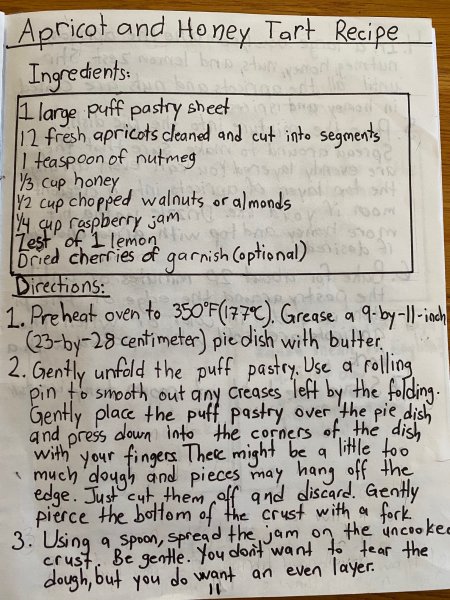 Apricot and Honey Tart Recipe
Ingredients:
1 large puff pastry sheet
12 fresh apricots cleaned and cut into segments
1 teaspoon of nutmeg
1/3 cup honey
1/2 cup chopped walnuts or almonds
1/4 cup raspberry jam
Zest of 1 lemon
Dried cherries of garnish (optional)
Directions:
1. Preheat oven to 350°F (177°C). Grease a 9-by-11-inch
(23-by-28 centimeter) pie dish with butter.
2. Gently unfold the puff pastry. Use a rolling
pin to smooth out any creases left by the folding.
Gently place the puff pastry over the pie dish
and press down into the corners of the dish
with your fingers. There might be a little too
much dough and pieces may hang off the
edge. Just cut them off and discard. Gently
pierce the bottom of the crust with a fork
3. Using a spoon, spread the jam on the uncooked
crust. Be gentle. You don't want to tear the
dough, but you do want an even layer.
11